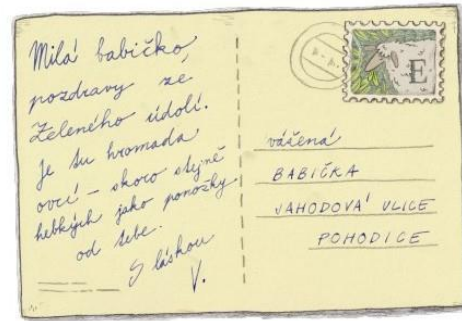 Milá babičko,
pozdravy ze
Zeleného údolí.
Je tu hromada
ovcí – skoro stejně
hebkých jako ponožky
od tebe.
S láskou
V.
E
vážená
BABIČKA
JAHODOVÁ ULICE
POHODICE